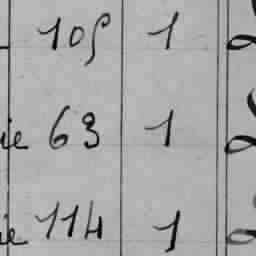 105 1
ie 63 1
ie 114 1